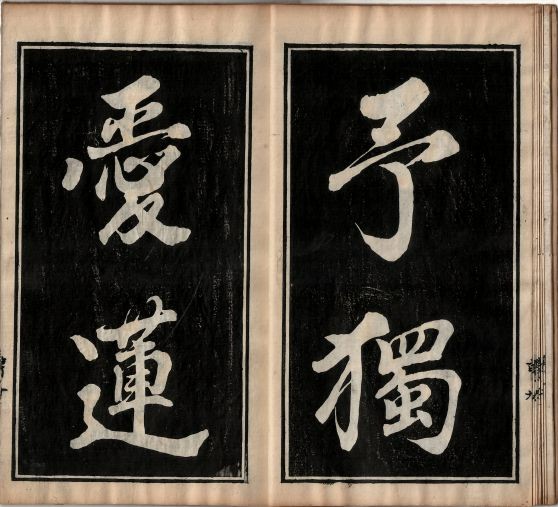 予獨
愛蓮